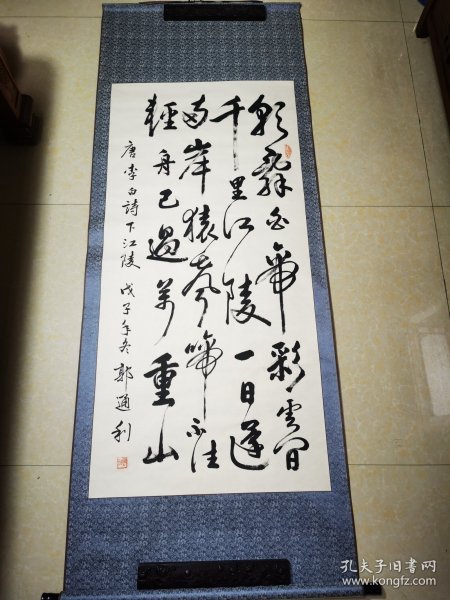 朝辭白帝彩雲間
千里江陵一日還
兩岸猿聲啼不住
輕舟已過萬重山
唐李白詩下江陵 戊子年冬 郭通利
孔夫子旧书网
www.kongfz.com